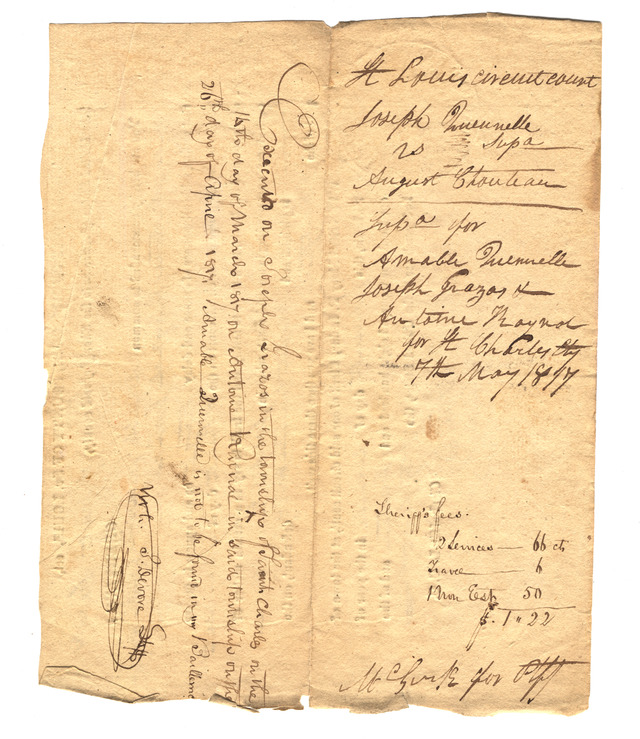 St Louis circuit court
Joseph Quennelle
vs Supa
August Chouteau
Supa for
Amable Quennelle
Joseph Grazos &
Antoine Raynal
for St Charles Cty
7th May 1817
Sheriff's fees.
2 Services — 66 cts
Trave — 6
1 Non Est 50
$. 1" 22
McGirk for Plff
Executed on Joseph Grazos in the township of Saint Charles on the
14th day of March 1817 on Antoine Reynal in said township on the
26th day of April 1817. Amable Quennelle is not to be found in my Bailiwic
S. Devore Shff